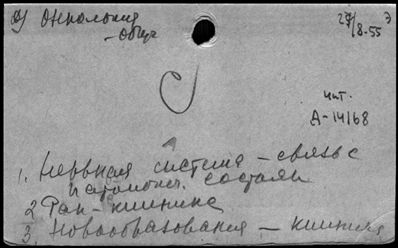 а) Онкология
27/8-55 Э
- общ
чит.
А-14/68
1. Нервная система - связь с
патологич. состоян
2 Рак - клиника
3. Новообразования - клиника